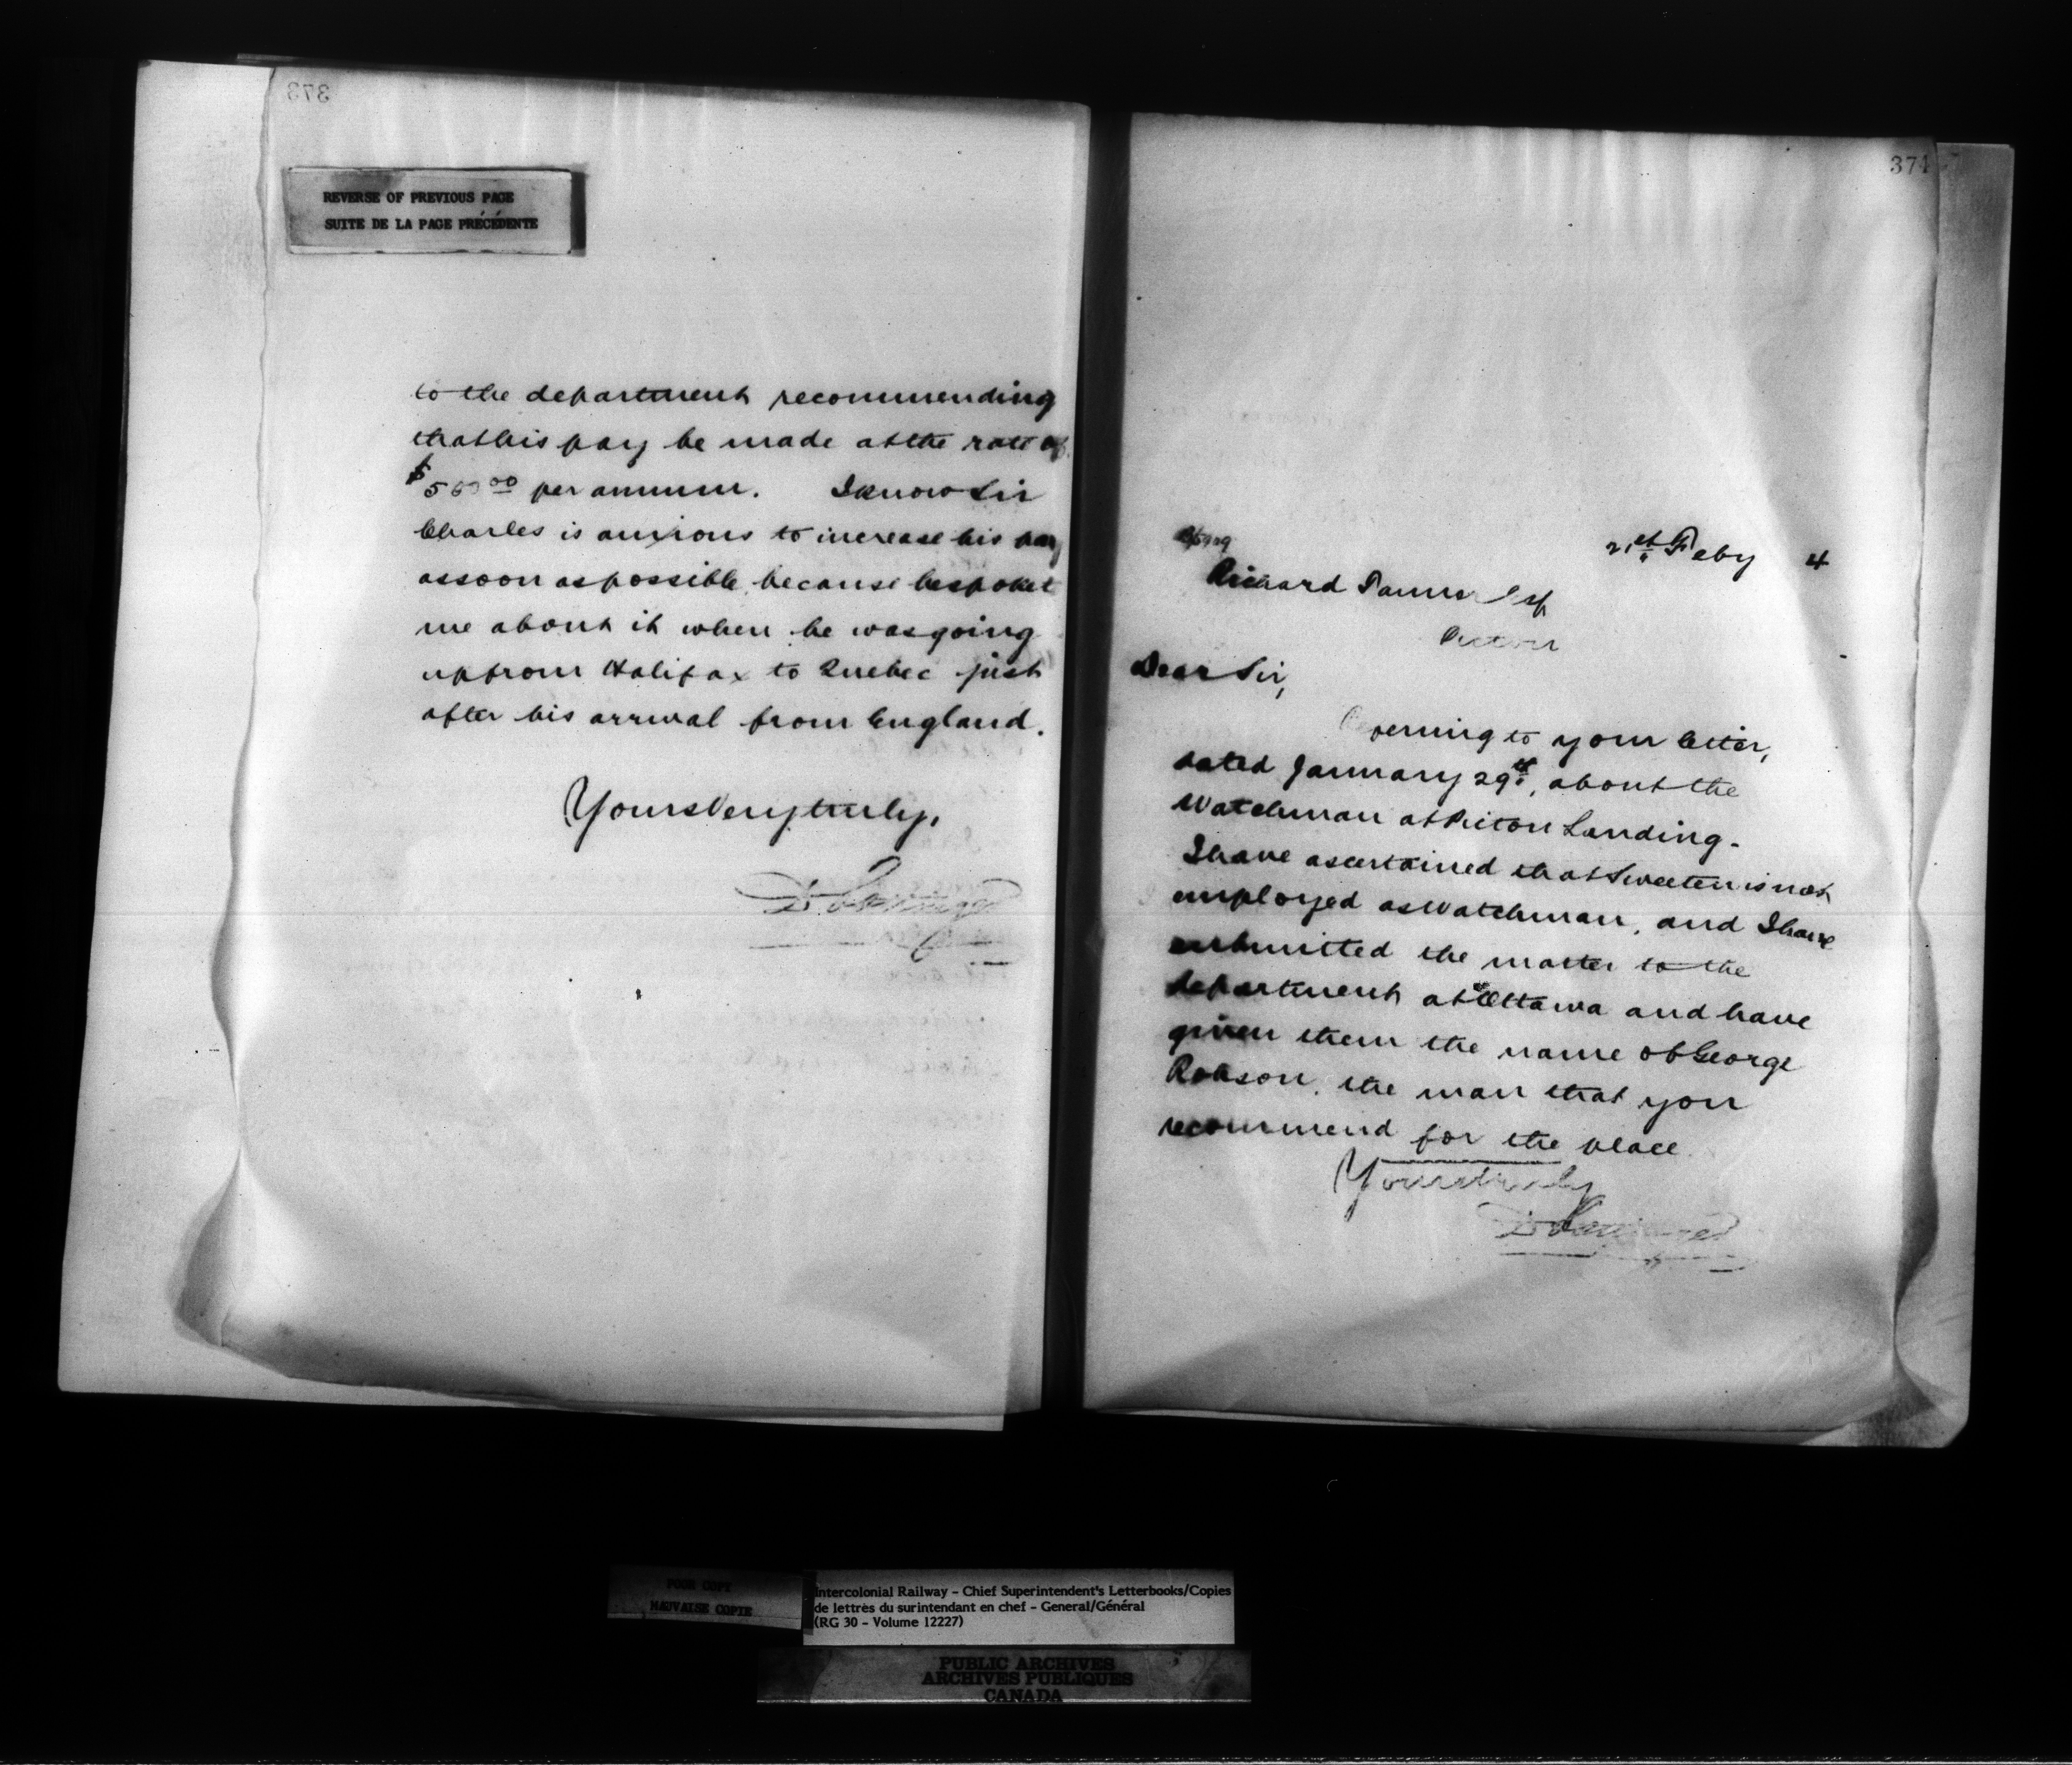 373
REVERSE OF PREVIOUS PAGE
SUITE DE LA PAGE PRÉCÉDENTE
to the department recommending
that his pay be made at the rate of
$500.00 per annum. I know Sir
Charles is anxious to increase his pay
as soon as possible, because he spoke t
me about it when he was going
up from Halifax to Quebec just
after his arrival from England.
Yours Very truly,
374
21st Feby 4
Richard Tanner Esq
Pictou
Dear Sir,
Referring to your letter,
dated January 29th, about the
Watchman at Pictou Landing.
I have ascertained that Sweeten is not
employed as Watchman, and I have
submitted the matter to the
department at Ottawa and have
given them the name of George
Robson, the man that you
recommend for the place
Yours truly
POOR COPY
MAUVAISE COPIE
Intercolonial Railway – Chief Superintendent's Letterbooks/Copies
de lettres du surintendant en chef – General/Général
(RG 30 – Volume 12227)
PUBLIC ARCHIVES
ARCHIVES PUBLIQUES
CANADA